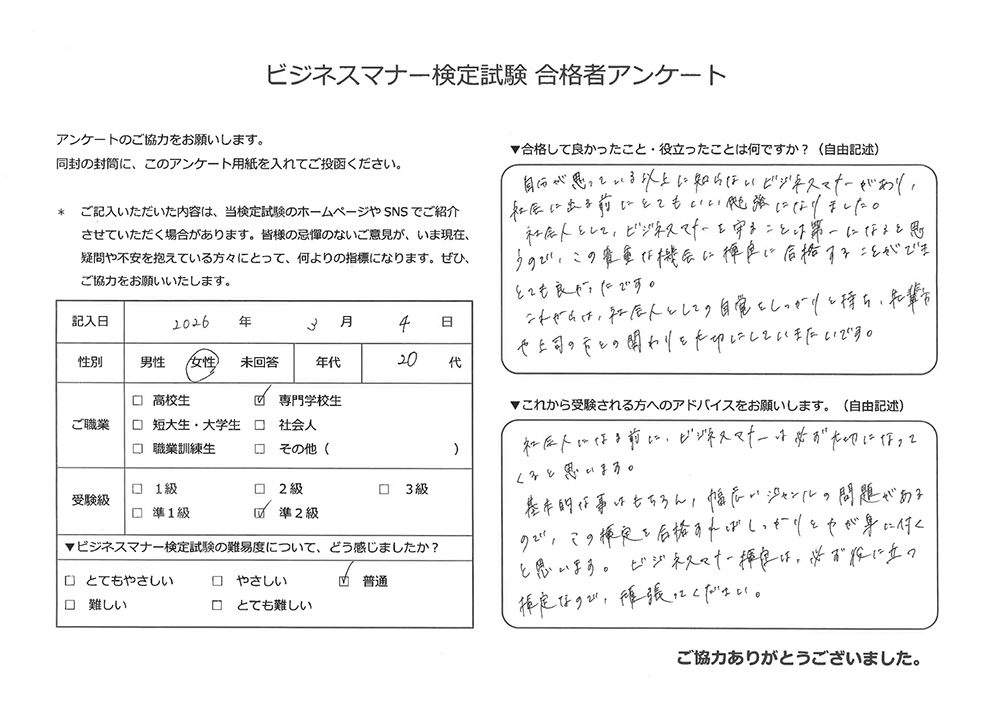 ビジネスマナー検定試験 合格者アンケート
アンケートのご協力をお願いします。
同封の封筒に、このアンケート用紙を入れてご投函ください。
＊ ご記入いただいた内容は、当検定試験のホームページや SNS でご紹介
させていただく場合があります。皆様の忌憚のないご意見が、いま現在、
疑問や不安を抱えている方々にとって、何よりの指標になります。ぜひ、
ご協力をお願いいたします。
記入日 2026 年 3 月 4 日
性別 男性 女性 未回答 年代 20 代
ご職業
□ 高校生 ☑ 専門学校生
□ 短大生・大学生 □ 社会人
□ 職業訓練生 □ その他（ ）
受験級
□ 1級 □ 2級 □ 3級
□ 準1級 ☑ 準2級
▼ビジネスマナー検定試験の難易度について、どう感じましたか？
□ とてもやさしい □ やさしい ☑ 普通
□ 難しい □ とても難しい
▼合格して良かったこと・役立ったことは何ですか？（自由記述）
自分が思っている以上に知らないビジネスマナーがあり、
社会に出る前にとてもいい勉強になりました。
社会人として、ビジネスマナーを守ることは第一になると思
うので、この貴重な機会に検定に合格することができ
とても良かったです。
これからは、社会人としての自覚をしっかりと持ち、先輩方
や上司の方との関わりを大切にしていきたいです。
▼これから受験される方へのアドバイスをお願いします。（自由記述）
社会人になる前に、ビジネスマナーは必ず大切になって
くると思います。
基本的な事はもちろん、幅広いジャンルの問題がある
ので、この検定を合格すればしっかりと身に付く
と思います。ビジネスマナー検定は、必ず役に立つ
検定なので、頑張ってください。
ご協力ありがとうございました。